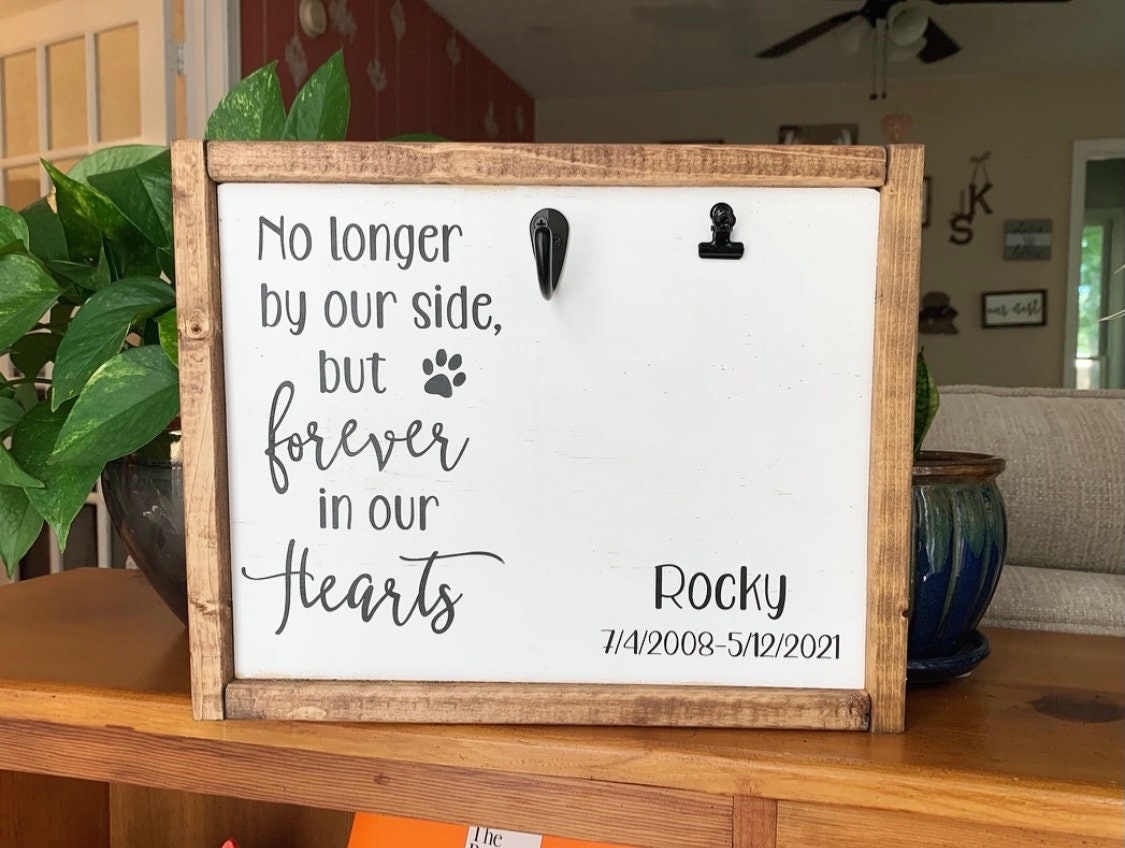 No longer
by our side,
but
forever
in our
Hearts
Rocky
7/4/2008-5/12/2021
S
K
our nest
The